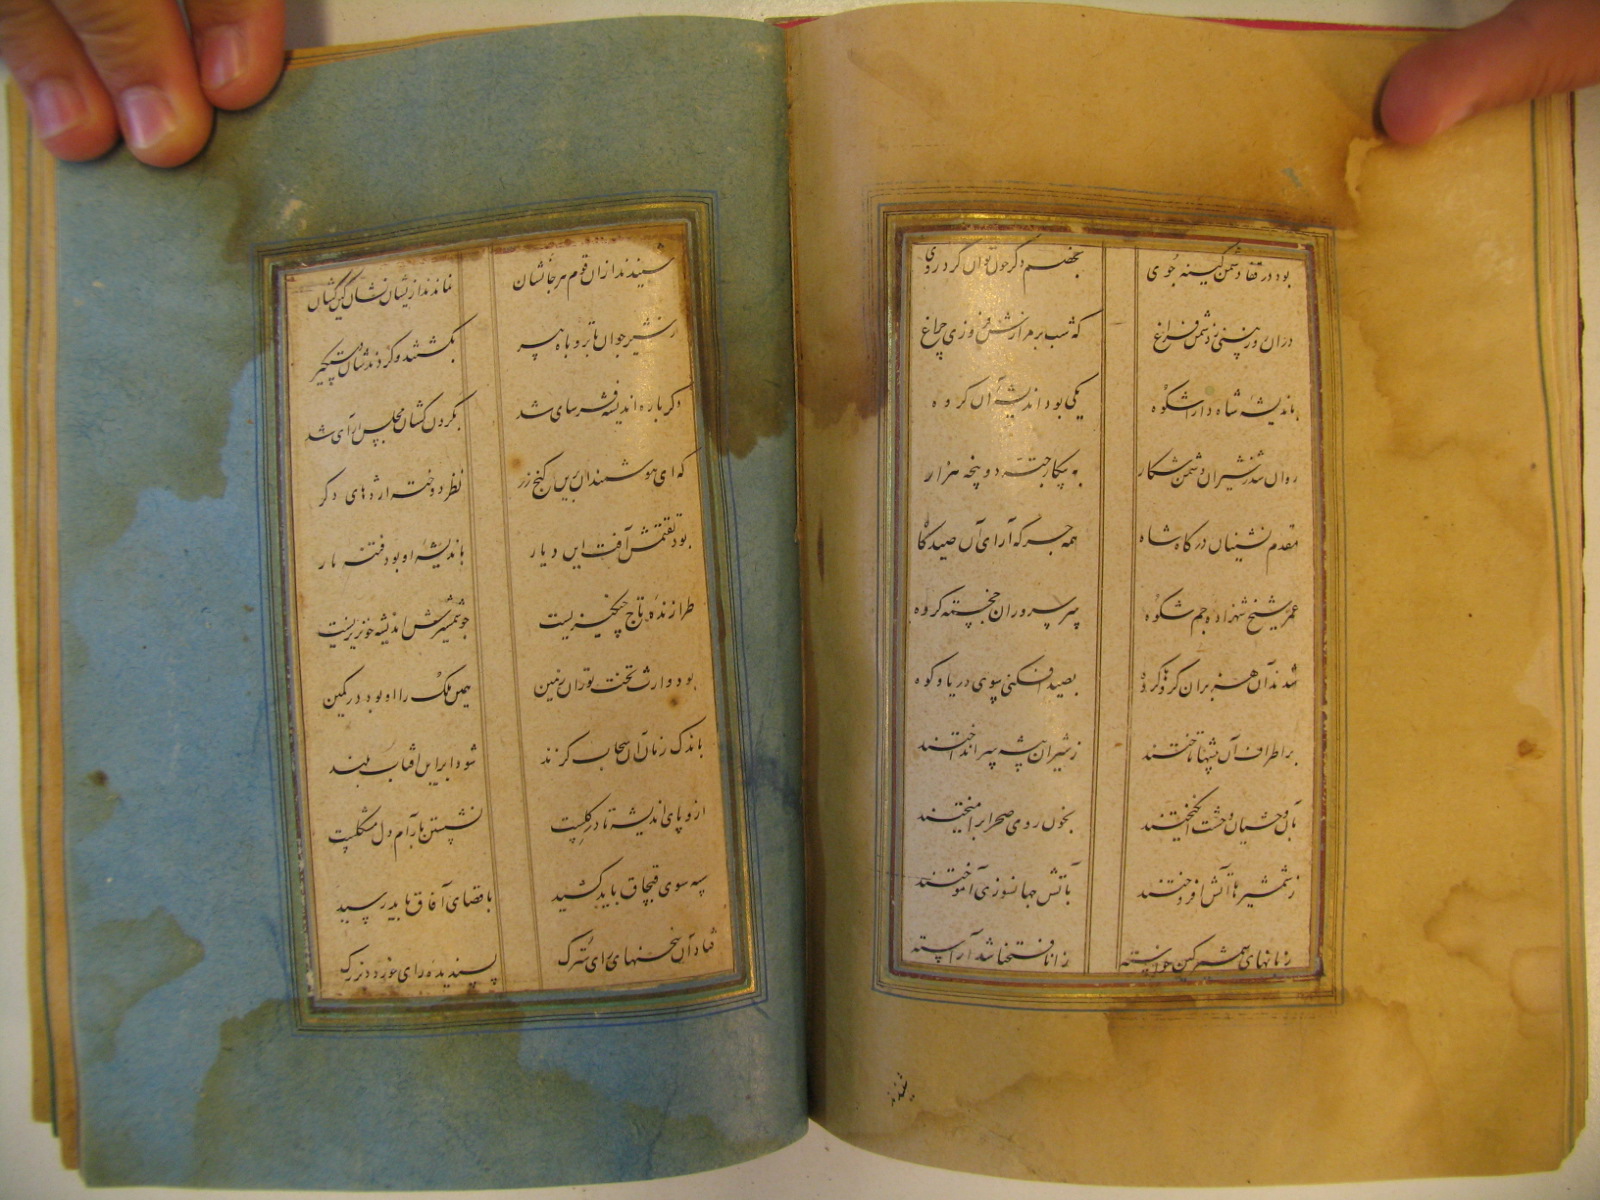 بود در قفا دشمن کینه جوی بخصم دگر چون توان کرد روی
دران ره ز پشتی دشمن فراغ که شب بر مزارش فروزی چراغ
باندیشهٔ شاه دارا شکوه یکی بود اندیشهٔ آن کروه
روان شد شیران دشمن شکار به پیکار جته دو پنجه هزار
مقدم نشینان درکاه شاه همه جرکه آرای آن صیدکاه
عمر شیخ شهزادهٔ جم شکوه سپر پروران خجسته کروه
شدند آن هژبران کروها کروه بصید افکنی سوی دریا و کوه
بر اطراف آن پشتها تاختند ز شیران بیشه سپر انداختند
بآن وحشیان وحشت انکیختند بخون روی صحرا برآمیختند
ز شمشیرها آتش افروختند بآتش جهانسوزی آموختند
ز بانهای شمشیر کین خواسته آراسته
شنیدند
شنیدند ازان قوم هر جا نشان نماندند ازیشان نشان کین کشان
ز شیر جوان تا بروباه پیر بکشتند و کردندشان دستکیر
دکر باره اندیشه فرسای شد بکردن کشان مجلس آرای شد
که ای هوشمندان برین کنج زر نظر دوخته اژدهای دکر
بود تقتمش آفت این دیار باندیشهٔ او بود فتنه بار
طرازندهٔ تاج چنکیزیست چو شمشیرش اندیشه خونریزیست
بود وارث تخت توران زمین همین ملک را او بود در کمین
باندک زمان آن سحاب کزند شود ابر این آفتاب بلند
ازو پای اندیشه تا در کلست نشستن بآرام دل مشکلست
سپه سوی قبچاق باید کشید باقصای آفاق باید رسید
فتاد آن سخنهای رای سترک پسندیدهٔ رای خورد و بزرک